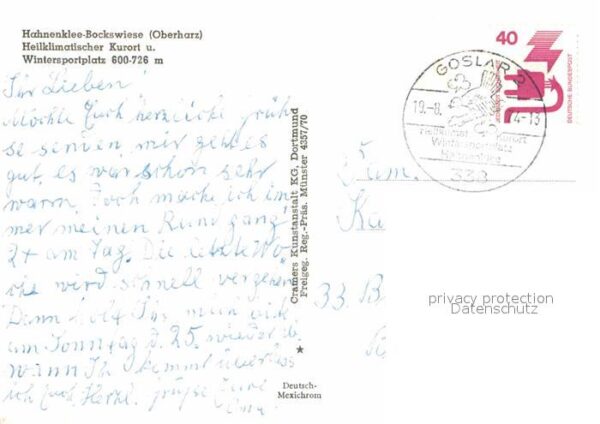 Hahnenklee-Bockswiese (Oberharz)
Heilklimatischer Kurort u.
Wintersportplatz 600-726 m
Ihr Lieben!
Möchte Euch herzliche Grüß
se senden, mir geht es
gut, es war schon sehr
warm. Doch mache ich im
mer meinen Rundgang
2x am Tag. Die letzte Wo
che wird schnell vergehen
Dann holt Ihr mich
am Sonntag d. 25. wieder ab.
wann Ihr kommt überlass
ich Euch. Herzl. Grüße Eure
Cramers Kunstanstalt KG, Dortmund
Freigeg. Reg.-Präs. Münster 4357/70
Deutsch-
Mexichrom
GOSLAR 2
19.-8. 74-13
Heilklimat. Kurort
Wintersportplatz
Hahnenklee
338
40
DEUTSCHE BUNDESPOST
Fam.
Ka
33. B
privacy protection
Datenschutz